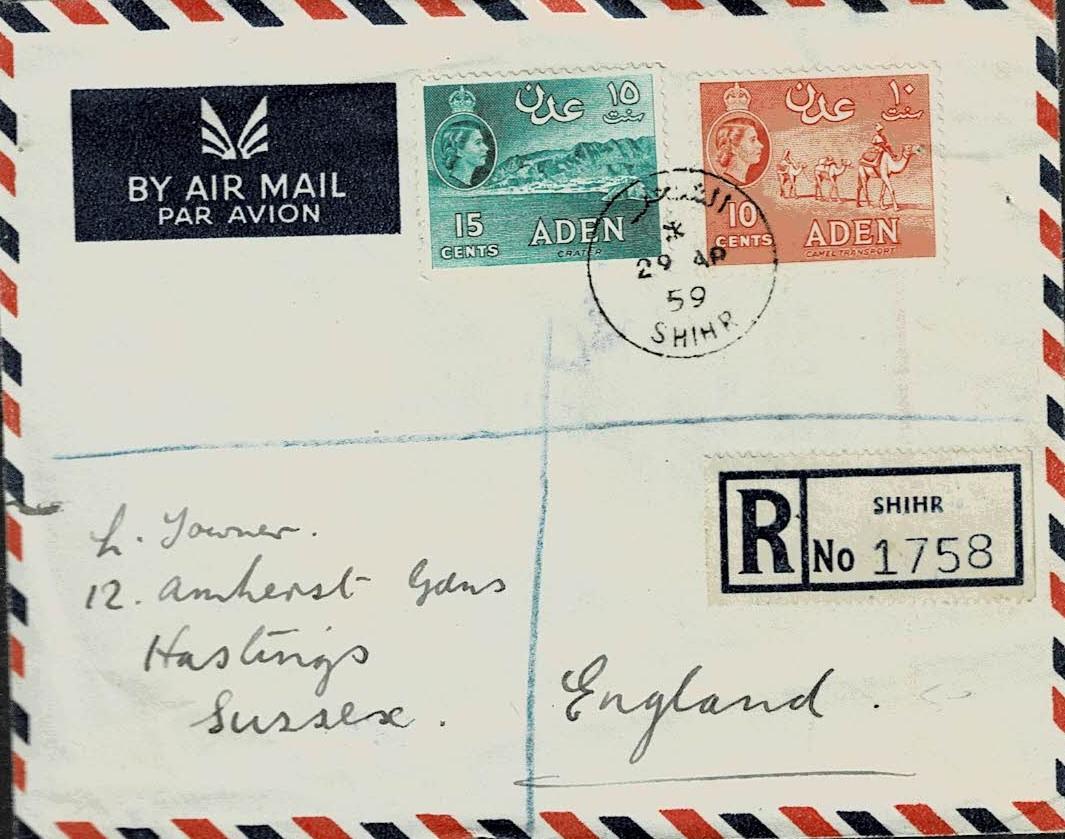 BY AIR MAIL
PAR AVION
عدن ١٥ سنت
15 CENTS ADEN
CRATER
عدن ١٠ سنت
10 CENTS ADEN
CAMEL TRANSPORT
الشحر
29 AP
59
SHIHR
R SHIHR
No 1758
L. Towner.
12. Amherst Gdns
Hastings
Sussex.
England.